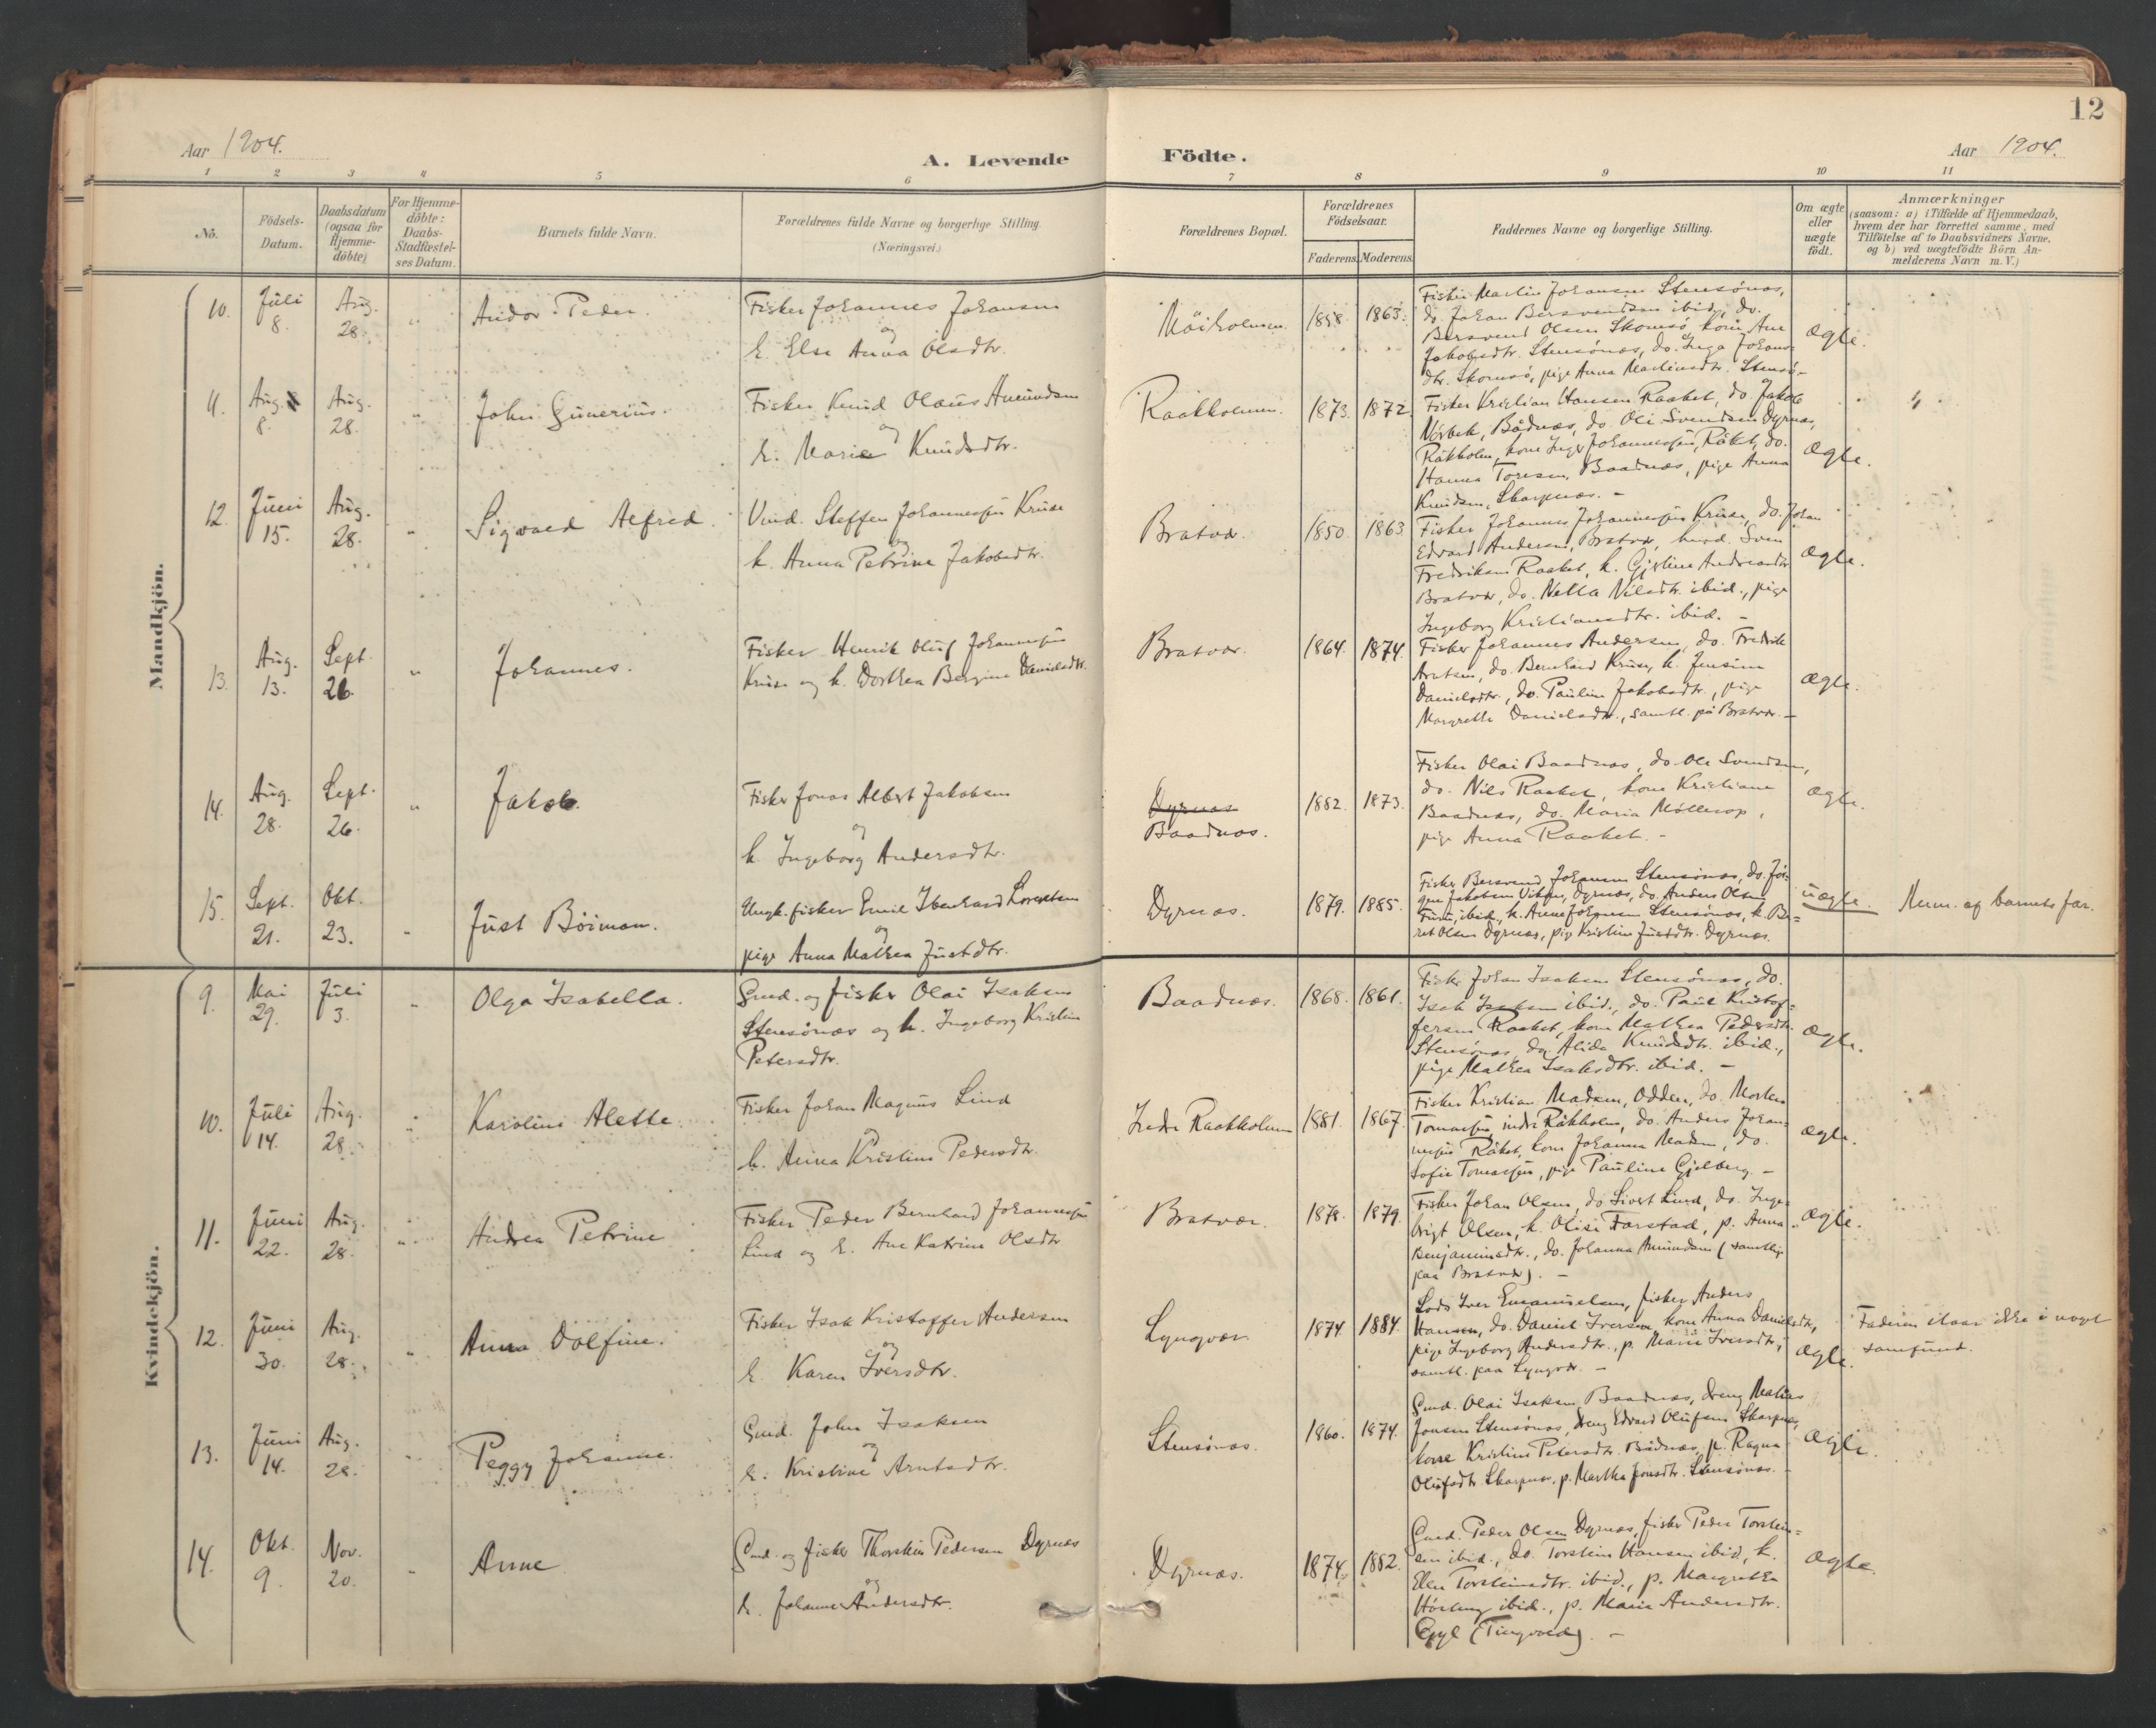 12
Aar 1904.
A. Levende Födte.
Aar 1904.
1 2 3 4 5 6 7 8 9 10 11
Nô.
Födsels-Datum.
Daabsdatum (ogsaa for Hjemme-döbte)
For Hjemme-döbte: Daabs-Stadfæstel-ses Datum.
Barnets fulde Navn.
Forældrenes fulde Navne og borgerlige Stilling.
(Næringsvei.)
Forældrenes Bopæl.
Forældrenes Födselsaar.
Faderens. Moderens.
Faddernes Navne og borgerlige Stilling.
Om ægte eller uægte födt.
Anmærkninger
(saasom: a) i Tilfælde af Hjemmedaab, hvem der har forrettet samme, med Tilföielse af to Daabsvidners Navne, og b) ved uægtefödte Börn Anmelderens Navn m. V.)
Mandkjön.
10. Juli 8. Aug. 28. " Andor Peder.
Fisker Johannes Johansen
og
k. Else Anna Olsdtr.
1858. 1863.
Fisker Martin Johansen Stensönæs,
do. Johan Bersvendsen ibid., do.
Bersvend Olsen Skomsö, kone Ane
Jakobsdtr. Stensönæs, do. Inga Johans-
dtr. Skomsö, pige Anna Martinsdtr. Stensö-
ægte.
11. Aug. 8. Aug. 28. " John Gunerius.
Fisker Knud Olaus Amundsen
og
k. Marie Knudsdtr.
Raakholmen. 1873. 1872.
Fisker Kristian Hansen Raaket, do. Jakob
Nörbek, Bådnæs, do. Ole Svendsen Dyrnæs,
Råkholm, kone Inger Johannessen, Råket, do.
Hanna Toresen, Baadnæs, pige Anna
Knudsen, Skarpnæs. -
ægte.
12. Juni 15. Aug. 28. " Sigvald Alfred.
Steffen Johannessen Kruse
og
k. Anna Petrine Jakobsdtr.
Bratvær. 1850. 1863
Fisker Johannes Johannessen Kruse, do. Johan
Edvard Andersen, Bratvær, Sven
Fredriksen Raaket, k. Gjertine Andreasdtr
Bratvær, do. Nella Nilsdtr. ibid., pige
Ingeborg Kristiansdtr. ibid. -
ægte.
13. Aug. 13. Sept. 26. " Johannes.
Fisker Henrik Oluf Johannessen
Kruse og k. Dorthea Bergine Danielsdtr.
Bratvær. 1864. 1874.
Fisker Johannes Andersen, do. Fredrik
Arntsen, do. Bernhard Kruse, k. Jensine
Danielsdtr., do. Pauline Jakobsdtr., pige
Margrethe Danielsdtr., samtl. på Bratvær. -
ægte.
14. Aug. 28. Sept. 26. " Jakob.
Fisker Jonas Albert Jakobsen
og
k. Ingeborg Andersdtr.
Dyrnæs
Baadnæs. 1882. 1873.
Fisker Olai Baadnæs, do. Ole Svendsen,
do. Nils Raaket, kone Kristiane
Baadnæs, do. Maria Möllerop,
pige Anna Raaket. -
ægte.
15. Sept. 21. Okt. 23. " Just Böiman.
Ungk. fisker Emil Iberhard Lorentsen
og
pige Anna Mathea Justdtr.
Dyrnæs. 1879. 1885.
Fisker Bersvend Johansen Stensönæs, do. Jör-
gen Jakobsen Viken, Dyrnæs, do. Anders Olsen
ibid., k. Anne Johansen Stensönæs, k. Be-
ret Olsen Dyrnæs, pige Kristine Justdtr. Dyrnæs.
uægte. Anm. af barnets far.
Kvindekjön.
9. Mai 29. Juli 3. " Olga Isabella.
Gmd. og fisker Olai Isaksen
Stensönæs og k. Ingeborg Kristine
Petersdtr.
Baadnæs. 1868. 1861.
Fisker Johan Isaksen Stensönæs, do.
Isak Isaksen ibid., do. Paul Kristof-
fersen Raaket, kone Mathea Pedersdtr.
Stensönæs, do. Alida Knudsdtr. ibid.,
pige Mathea Isaksdtr. ibid. -
ægte.
10. Juli 14. Aug. 28. " Karoline Alette.
Fisker Johan Magnus Lind
og
k. Anna Kristine Pedersdtr.
Indre Raakholmen 1881. 1867.
Fisker Kristian Madsen, Odden, do. Morten
Tomassen indre Råkholm, do. Anders Johan-
nessen Råket, kone Johanna Madsen, do.
Sofie Tomassen, pige Pauline Gjelberg. -
ægte.
11. Juni 22. Aug. 28. " Andrea Petrine
Fisker Peder Bernhard Johannessen
Lind og k. Ane Katrine Olsdtr
Bratvær. 1878. 1879.
Fisker Johan Olsen, do. Sivert Lind, do. Inge-
brigt Olsen, k. Olise Farstad, p. Anna
Benjaminsdtr., do. Johanna Amundsen (samtlige
paa Bratvær). -
ægte.
12. Juni 30. Aug. 28. " Anna Dolfine.
Fisker Isak Kristoffer Andersen
og
k. Karen Iversdtr.
Lyngvær. 1874. 1884.
Lods Iver Emanuelsen, fisker Anders
Hansen, do. Daniel Iversen kone Anna Danielsdtr,
pige Ingeborg Andersdtr., p. Marie Iversdtr,
samtl. paa Lyngvær. -
ægte.
Faderen staar ikke i noget
samfund.
13. Juni 14. Aug. 28. " Peggy Johanne.
Gmd. John Isaksen
og
k. Kristine Arntsdtr.
Stensönæs. 1860. 1874.
Gmd. Olai Isaksen Baadnæs, dreng Matias
Jonsen Stensönæs, dreng Edvard Olufsen Skarpnæs,
kone Kristine Petersdtr. Bådnæs, p. Ragna
Olufsdtr. Skarpnæs, p. Martha Jonsdtr. Stensönæs. -
ægte.
14. Okt. 9. Nov. 20. " Anne
Gmd. og fisker Thorstein Pedersen Dyrnæs
og
k. Johanne Andersdtr.
Dyrnæs. 1874. 1882.
Gmd. Peder Olsen Dyrnæs, fisker Peder Torstein-
sen ibid., do. Torstein Hansen ibid., k.
Elen Torsteinsdtr. ibid., p. Margrethe
ibid., p. Marie Andersdtr.
(Tingvold). -
ægte.